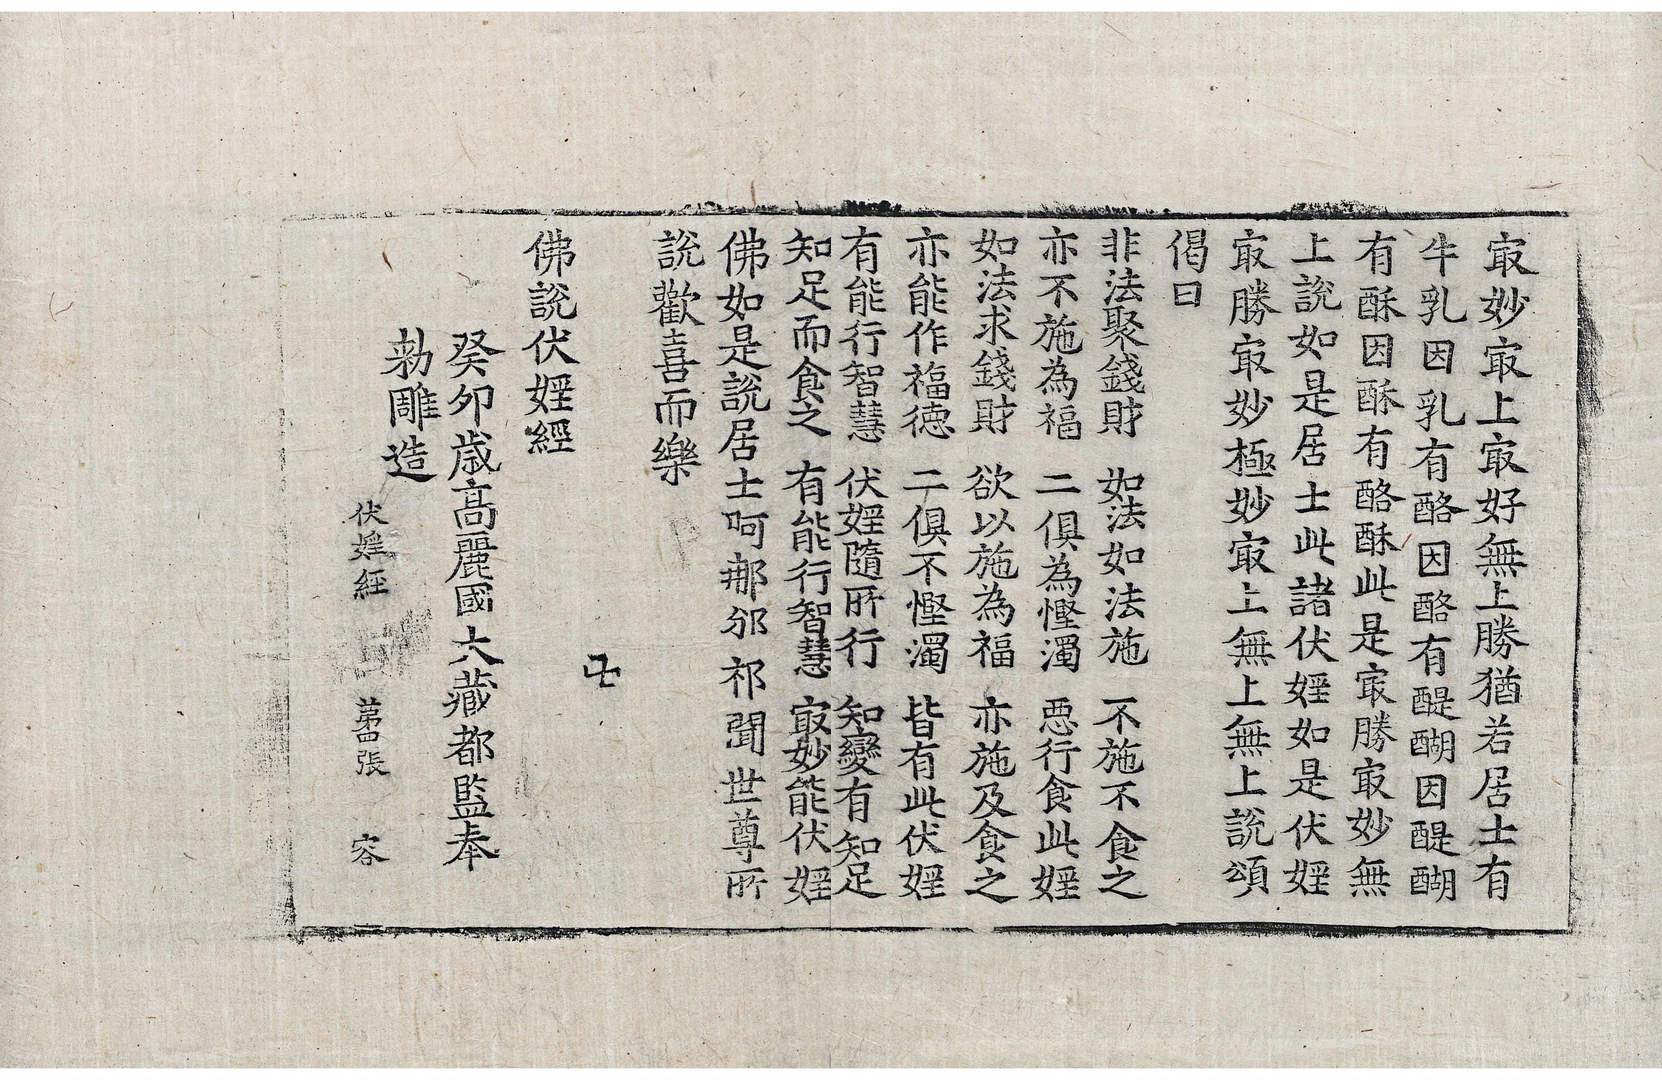 冣妙冣上冣好無上勝猶若居士有
牛乳因乳有酪因酪有醍醐因醍醐
有酥因酥有酪酥此是冣勝冣妙無
上說如是居士此諸伏婬如是伏婬
冣勝冣妙極妙冣上無上無上說頌
偈曰
非法聚錢財 如法如法施 不施不食之
亦不施為福 二俱為慳濁 惡行食此婬
如法求錢財 欲以施為福 亦施及食之
亦能作福德 二俱不慳濁 皆有此伏婬
有能行智慧 伏婬隨所行 知變有知足
知足而食之 有能行智慧 冣妙能伏婬
佛如是說居士呵那邠祁聞世尊所
說歡喜而樂
卍
佛說伏婬經
癸卯歲高麗國大藏都監奉
勑雕造
伏婬經 第四張 容